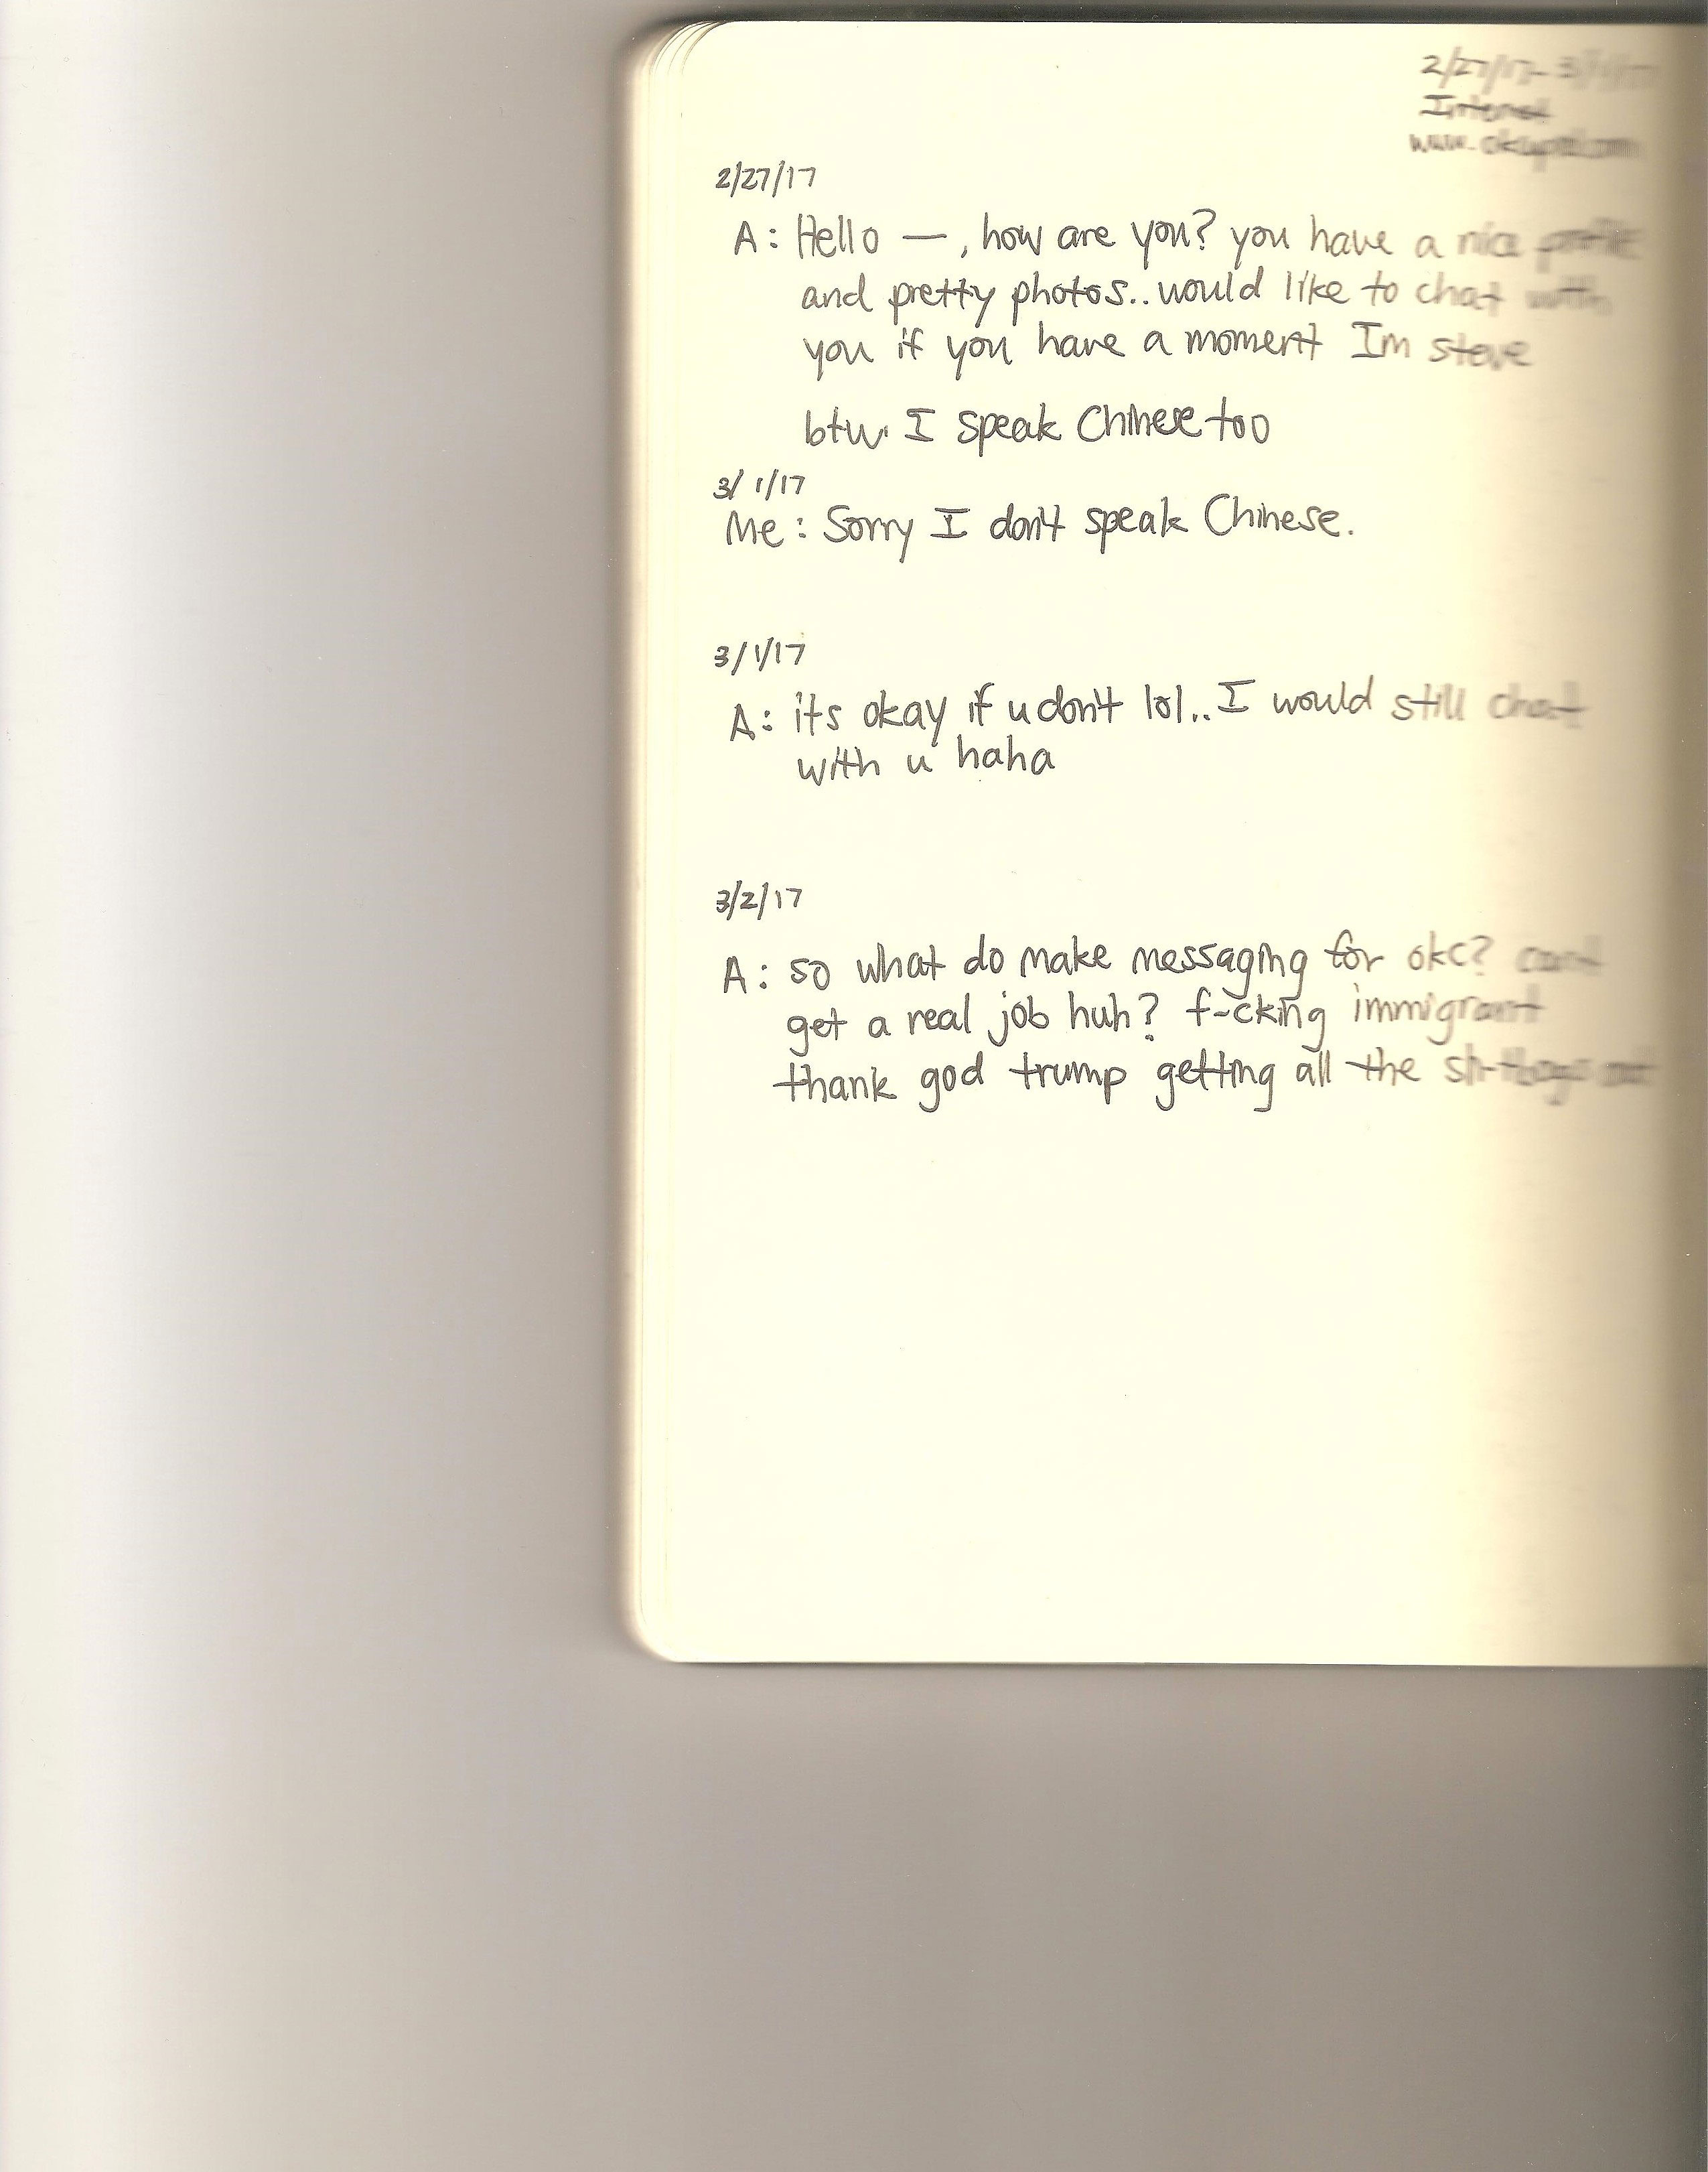 2/27/17- 3/
Internet
www.okcupid.com
2/27/17
A: Hello —, how are you? you have a nice profile
and pretty photos.. would like to chat with
you if you have a moment Im steve
btw. I speak Chinese too
3/1/17
Me: Sorry I don't speak Chinese.
3/1/17
A: its okay if u don't lol.. I would still chat
with u haha
3/2/17
A: so what do make messaging for okc? cant
get a real job huh? f-cking immigrant
thank god trump getting all the sh-tbags out